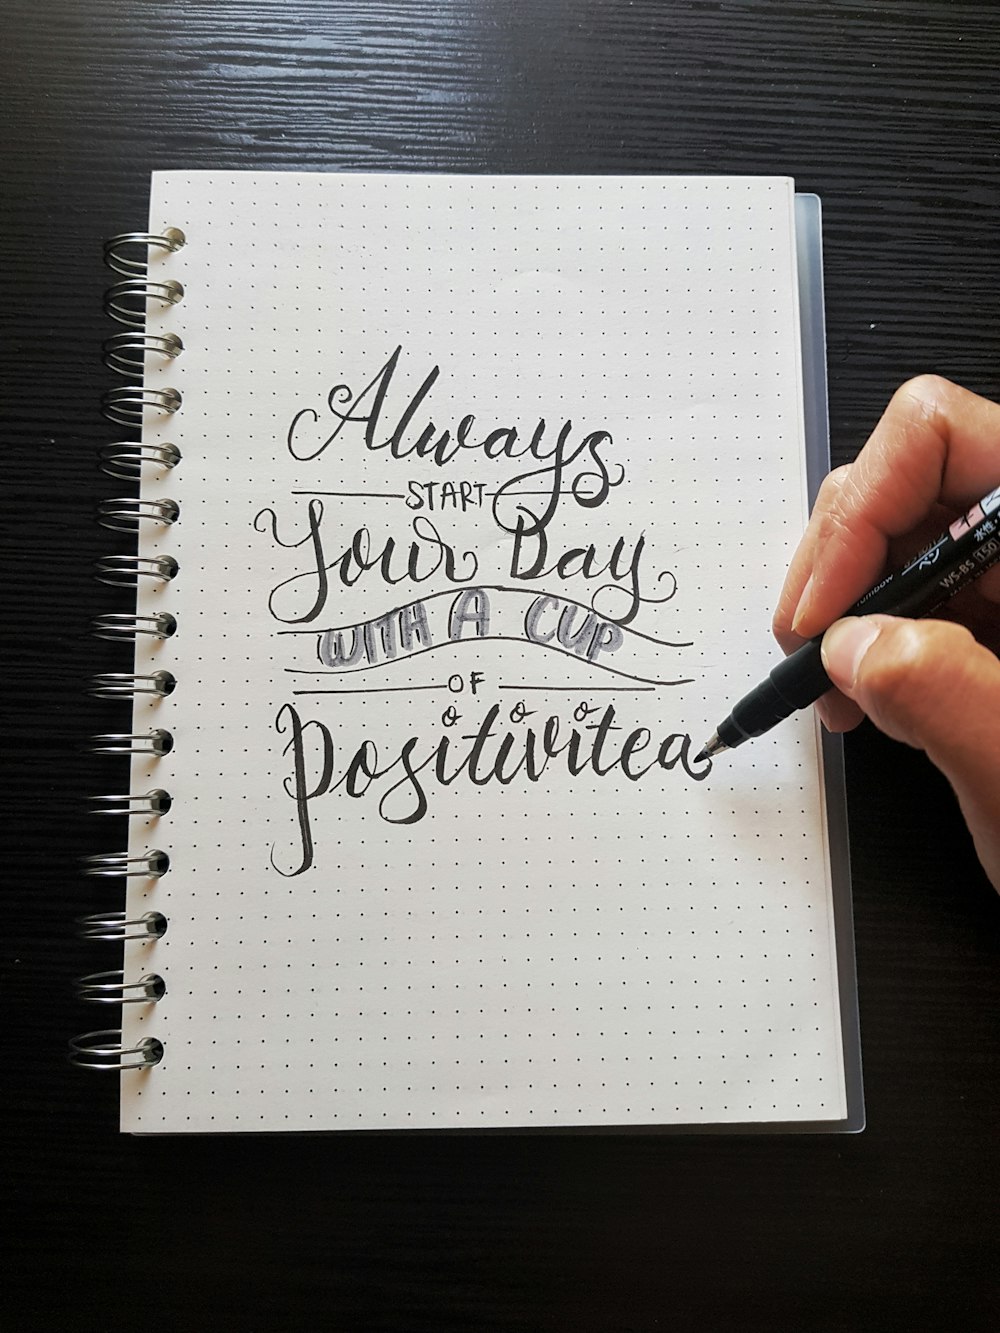 Always
START
Your Day
WITH A CUP
OF
Positivitea
WS-BS (150)
水性